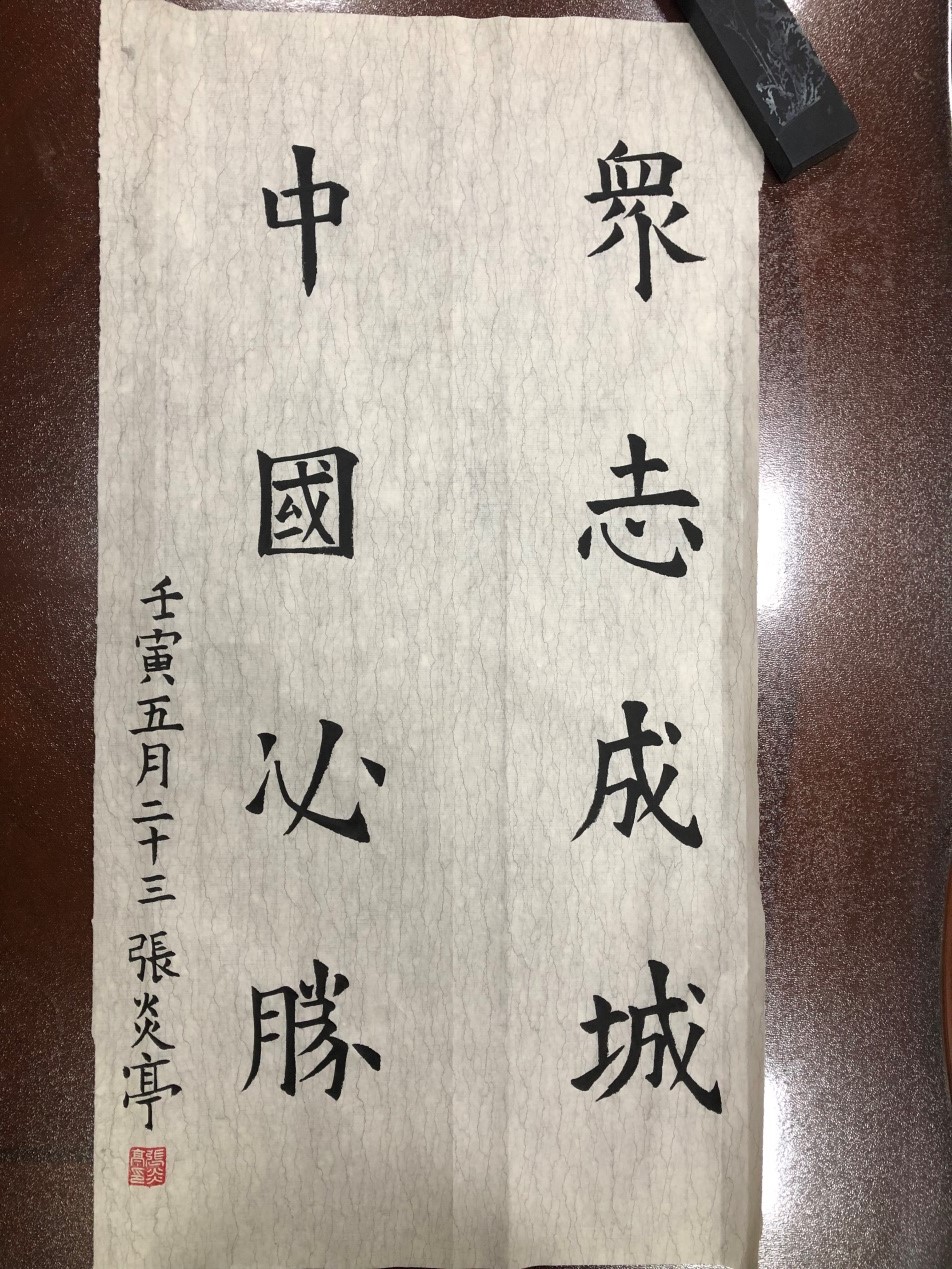 眾志成城
中國必勝
壬寅五月二十三 張炎亭
張炎亭印